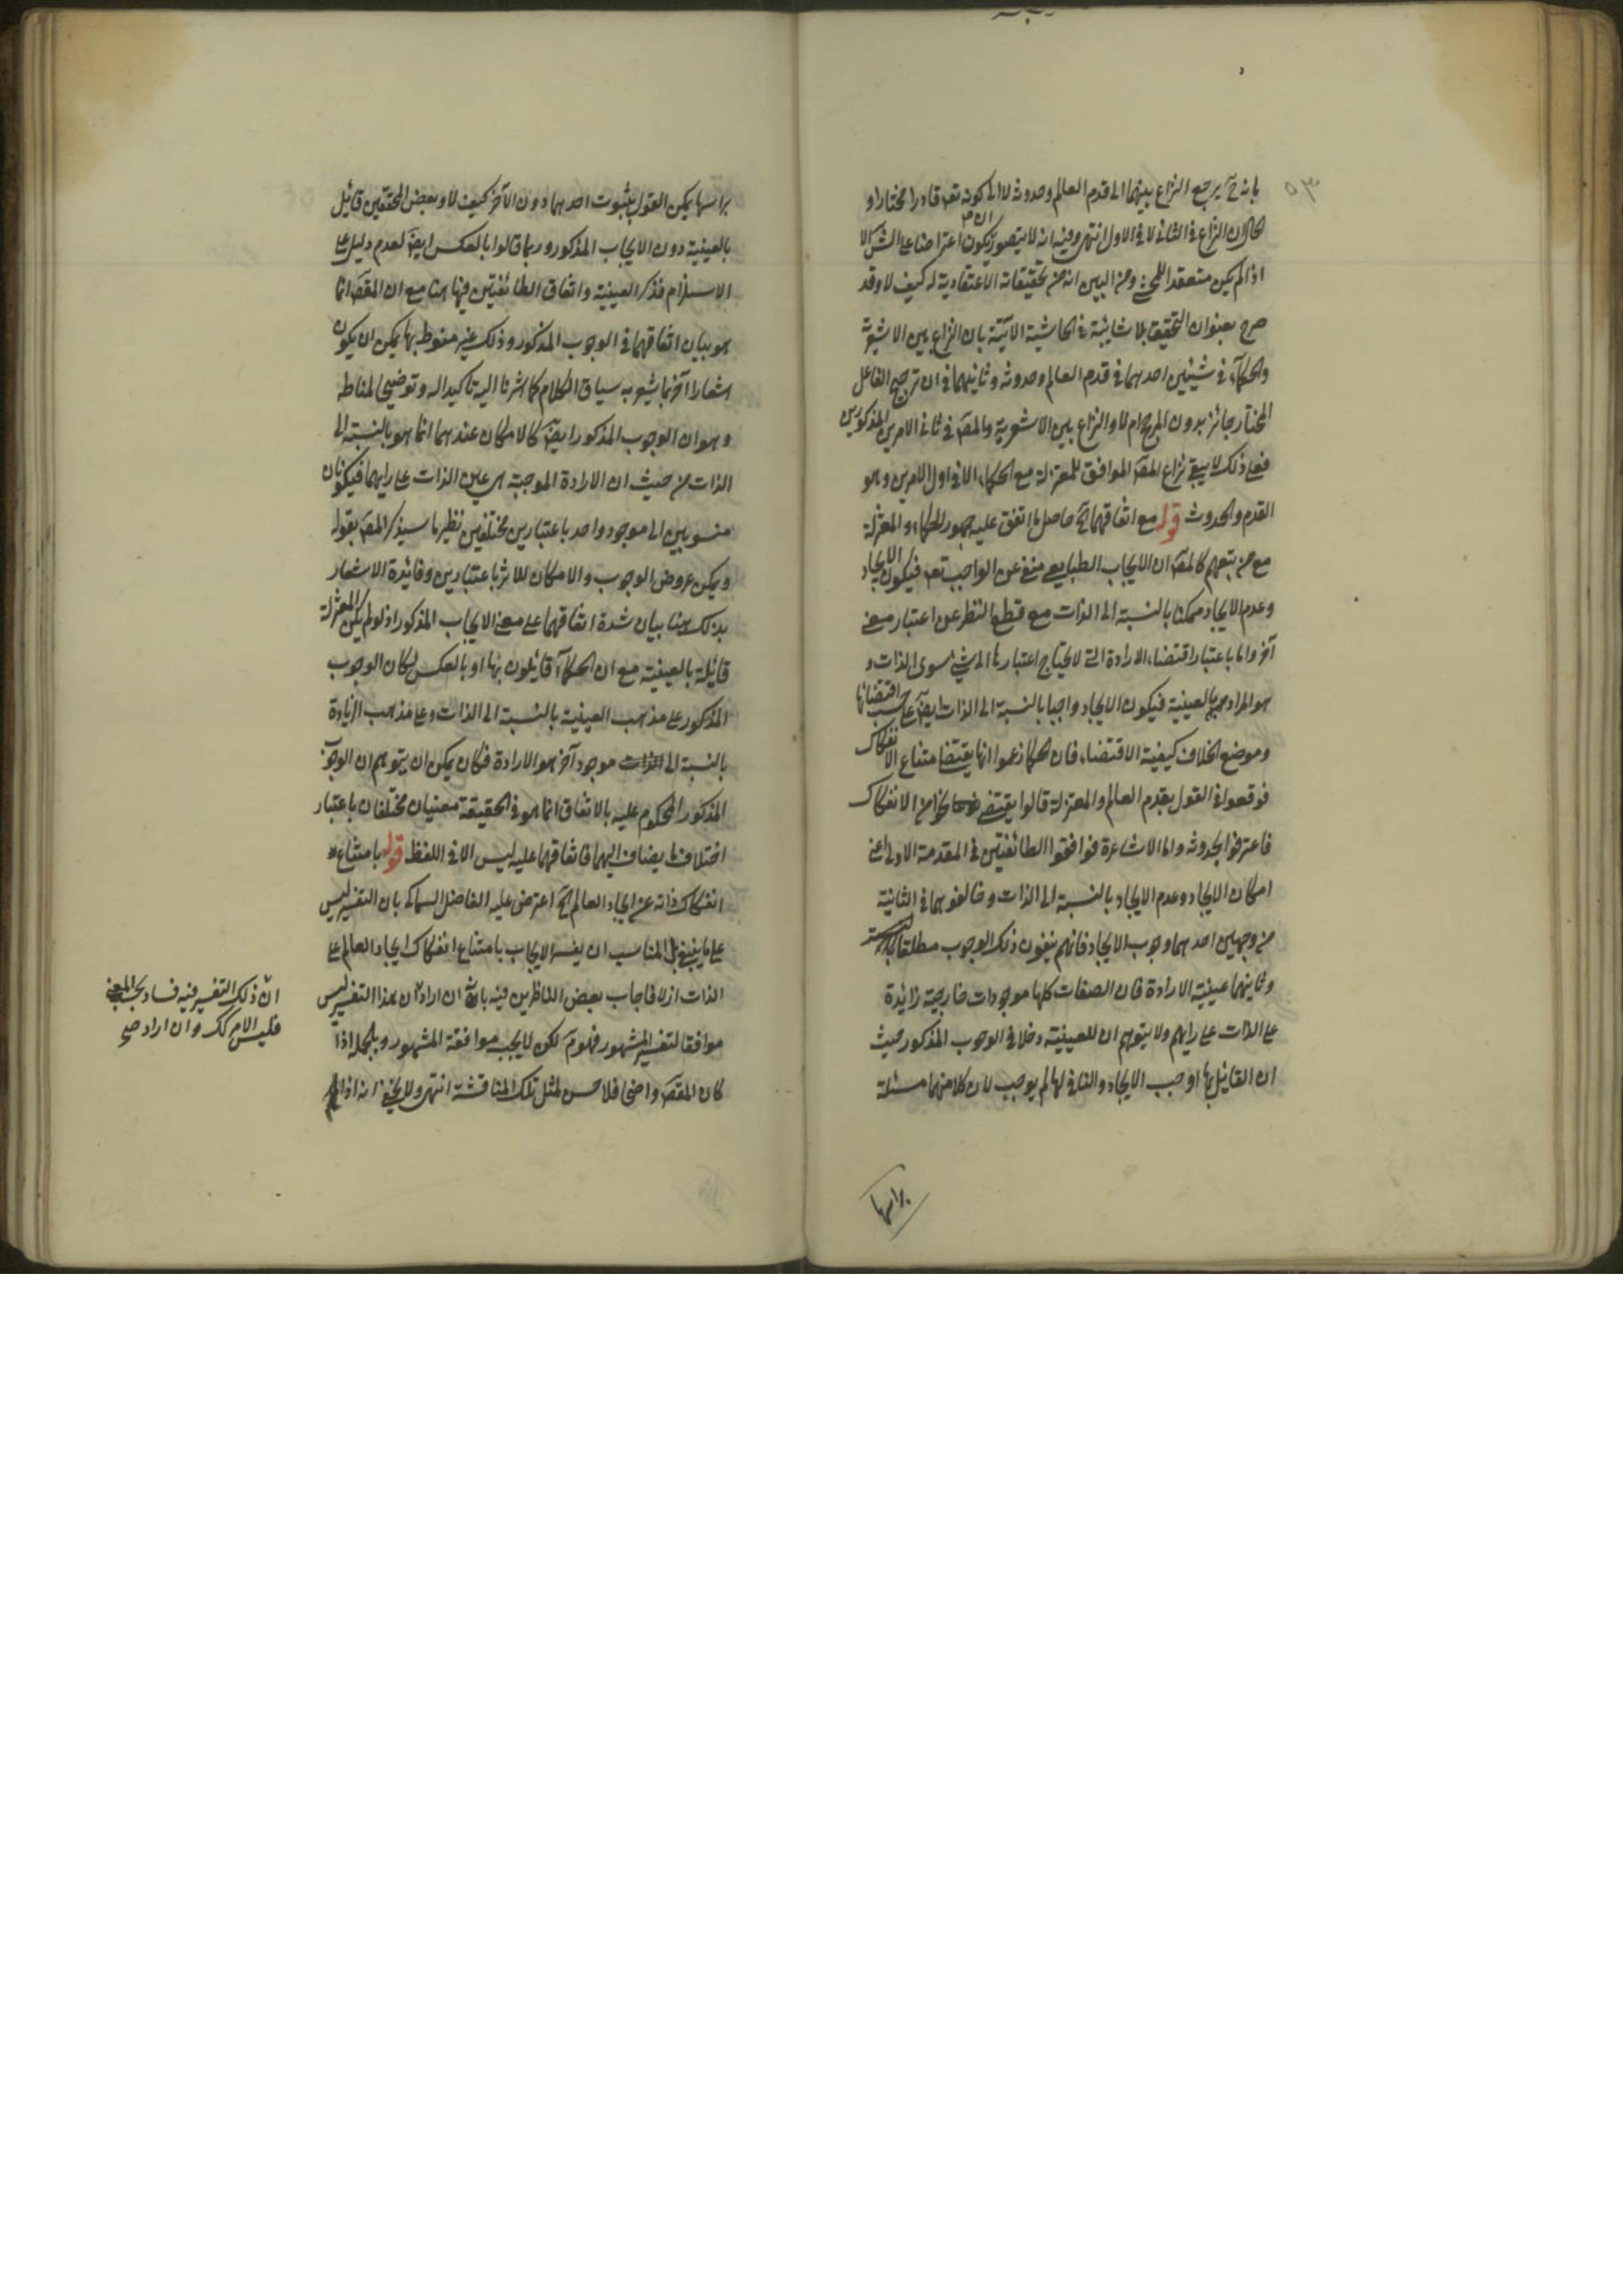 ٥٣
بانه ح يرجع النزاع بينهما الى قدم العالم وحدوثه لا الى كونه تعـ قادرا مختارا و
الحال ان النزاع في الثاني لا في الاول انتهى وفيه انه لا يتصور ان يكون اعتراضا على الش الا
اذا لم يكن معتقد المحشي ومن البين انه من تحقيقاته الاعتقادية له كيف لا وقد
صرح بعنوان التحقيق بلا شائبة في الحاشية الآتية بان النزاع بين الاشعرية
والحكماء في شيئين احدهما في قدم العالم وحدوثه وثانيهما في ان ترجيح الفاعل
المختار جائز بدون المرجح ام لا والنزاع بين الاشعرية والمصـ في ثاني الامرين المذكورين
فعلى ذلك لا يبقى نزاع المصـ الموافق للمعتزلة مع الحكماء الا في اول الامرين وهو
القدم والحدوث قوله مع اتفاقهما الخ حاصل ما اتفق عليه جمهور الحكماء والمعتزلة
مع من يتبعهم كالمصـ ان الايجاب الطبايعي منفي عن الواجب تعـ فيكون الايجاد
وعدم الايجاد ممكنا بالنسبة الى الذات مع قطع النظر عن اعتبار معنى
آخر واما باعتبار اقتضاء الارادة التي لا يحتاج اعتبارها الى شيء سوى الذات و
هو المراد بالعينية فيكون الايجاد واجبا بالنسبة الى الذات ايضـ على حسب اقتضائها
وموضع الخلاف كيفية الاقتضاء فان الحكما زعموا انها يقتضي امتناع الانفكاك
فوقعوا في القول بقدم العالم والمعتزلة قالوا يقتضي نحوا من الانفكاك
فاعترفوا بحدوثه واما الاشاعرة فوافقوا الطائفتين في المقدمة الاولى اعني
امكان الايجاد وعدم الايجاد بالنسبة الى الذات وخالفوهما في الثانية
من وجهين احدهما وجوب الايجاد فانهم ينفون ذلك الوجوب مطلقا
وثانيهما عينية الارادة فان الصفات كلها موجودات خارجية زايدة
على الذات على رايهم ولا يتوهم ان للعينية دخلا في الوجوب المذكور حيث
ان القايل بها اوجب الايجاد والنافي لها لم يوجب لان كلا منهما مسئلة
براسها
براسها يمكن القول بثبوت احدهما دون الآخر كيف لا وبعض المحققين قايل
بالعينية دون الايجاب المذكور وربما قالوا بالعكس ايضـ لعدم دليل على
الاستلزام فذكر العينية واتفاق الطائفتين فيها هنا مع ان المقصـ انما
هو بيان اتفاقهما في الوجوب المذكور وذلك غير منوط بها يمكن ان يكون
اشعارا آخر بما يشعر به سياق الكلام كما اشرنا اليه تاكيدا له وتوضيحا لمناطه
وهو ان الوجوب المذكور ايضـ كالامكان عندهما انما هو بالنسبة الى
الذات من حيث ان الارادة الموجبة هي عين الذات على رايهما فيكونان
منسوبين الى موجود واحد باعتبارين مختلفين نظير ما سيذكر المصـ بقوله
ويمكن عروض الوجوب والامكان للاثر باعتبارين وفائدة الاشعار
بذلك هنا بيان شدة اتفاقهما على معنى الايجاب المذكور اذ لو لم يكن المعتزلة
قايلة بالعينية مع ان الحكماء قايلون بها او بالعكس لكان الوجوب
المذكور على مذهب العينية بالنسبة الى الذات وعلى مذهب الزيادة
بالنسبة الى موجود آخر هو الارادة فكان يمكن ان يتوهم ان الوجوب
المذكور المحكوم عليه بالاتفاق انما هو في الحقيقة معنيان مختلفان باعتبار
اختلاف ما يضاف اليهما فاتفاقهما عليه ليس الا في اللفظ قوله بامتناع
انفكاك ذاته عن ايجاد العالم الخ اعترض عليه الفاضل السماكي بان التفسير ليس
على ما ينبغي بل المناسب ان يفسر الايجاب بامتناع انفكاك ايجاد العالم على
الذات ازلا فاجاب بعض الناظرين فيه بانه ان اراد ان هذا التفسير ليس
موافقا لتفسير المشهور فهو مـ لكن لا يجب موافقة المشهور وبالجملة اذا
كان المقصـ واضحا فلا حسن لمثل تلك المناقشة انتهى ولا يخفى انه اذا لم
ان ذلك التفسير فيه فساد بحسب المعنى
فليس الامر كك وان اراد صح